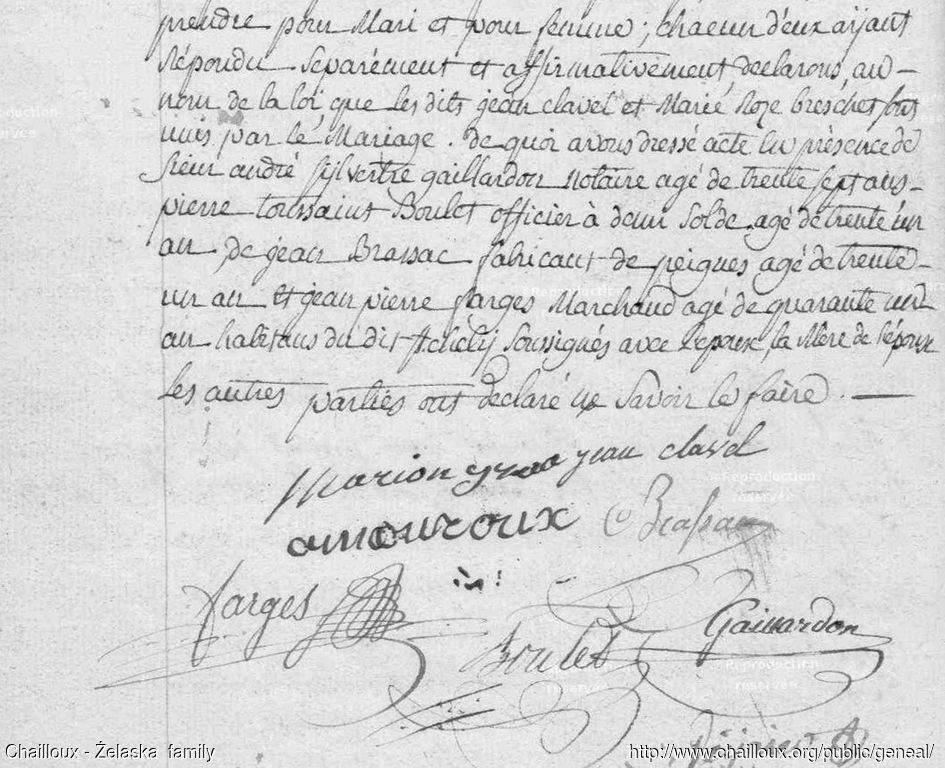 prendre pour Mari et pour femme; chacun d'eux aÿant
répondu séparément et affirmativement, déclarons, au
nom de la loi, que les dits jean clavel et Marie Roze breschet sont
unis par le Mariage. de quoi avons dressé acte en présence de
Sieur andré Sÿlvestre gaillardon notaire agé de trente sept ans
pierre toussaint Boulet officier à demi solde, agé de trente un
an, de jean Brassac fabricant de peignes agé de trente
un an et jean pierre farges Marchand agé de quarante un
an habitans du dit soussignés avec l'epoux, la Mère de l'epoux
les autres parties ont declaré ne Savoir le faire.
Marion jean clavel
amouroux Brassac
farges
Boulet Gaillardon
Reproduction
reserve
Chailloux - Želaska family
http://www.chailloux.org/public/geneal/